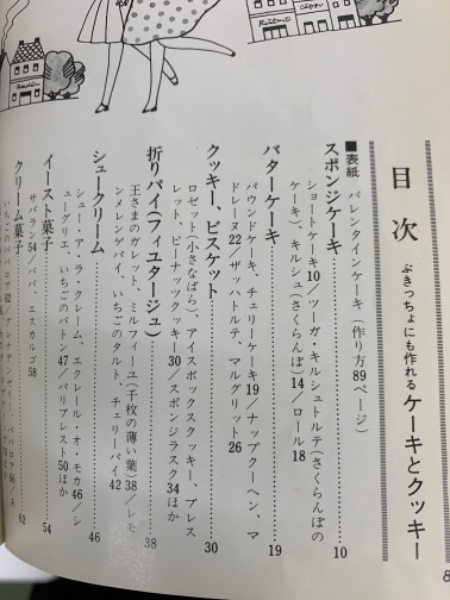 目次 ぶきっちょにも作れるケーキとクッキー
■表紙 バレンタインケーキ(作り方89ページ)
スポンジケーキ……10
ショートケーキ10/ツーガ・キルシュトルテ(さくらんぼの
ケーキ)、キルシュ(さくらんぼ)14/ロール18
バターケーキ……19
パウンドケーキ、チェリーケーキ19/ナップクーヘン、マ
ドレーヌ22/ザッハトルテ、マルグリット26
クッキー、ビスケット……30
ロゼット(小さなばら)、アイスボックスクッキー、プレス
レット、ピーナッツクッキー30/スポンジラスク34ほか
折りパイ(フィユタージュ)……38
王さまのガレット、ミルフィーユ(千枚の薄い葉)38/レモ
ンメレンゲパイ、いちごのタルト、チェリーパイ42
シュークリーム……46
シュー・ア・ラ・クレーム、エクレール・オ・モカ46/シ
ューグリエ、いちごのバトン47/パリブレスト50ほか
イースト菓子……54
サバラン54/ババ、エスカルゴ58
クリーム菓子……62
いちごのババロア62
8